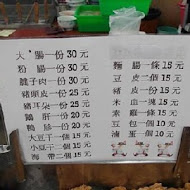 大腸一份30元
粉腸一份30元
腱子肉一份30元
豬頭皮一份25元
豬耳朵一份25元
鴨肝一份20元
鴨胗一份20元
大豆干一個15元
小豆干一個15元
海帶一個15元
麵腸一條15元
豆皮一個15元
豬皮一份15元
米血一塊15元
素雞一條15元
豆包一個20元
滷蛋一個10元